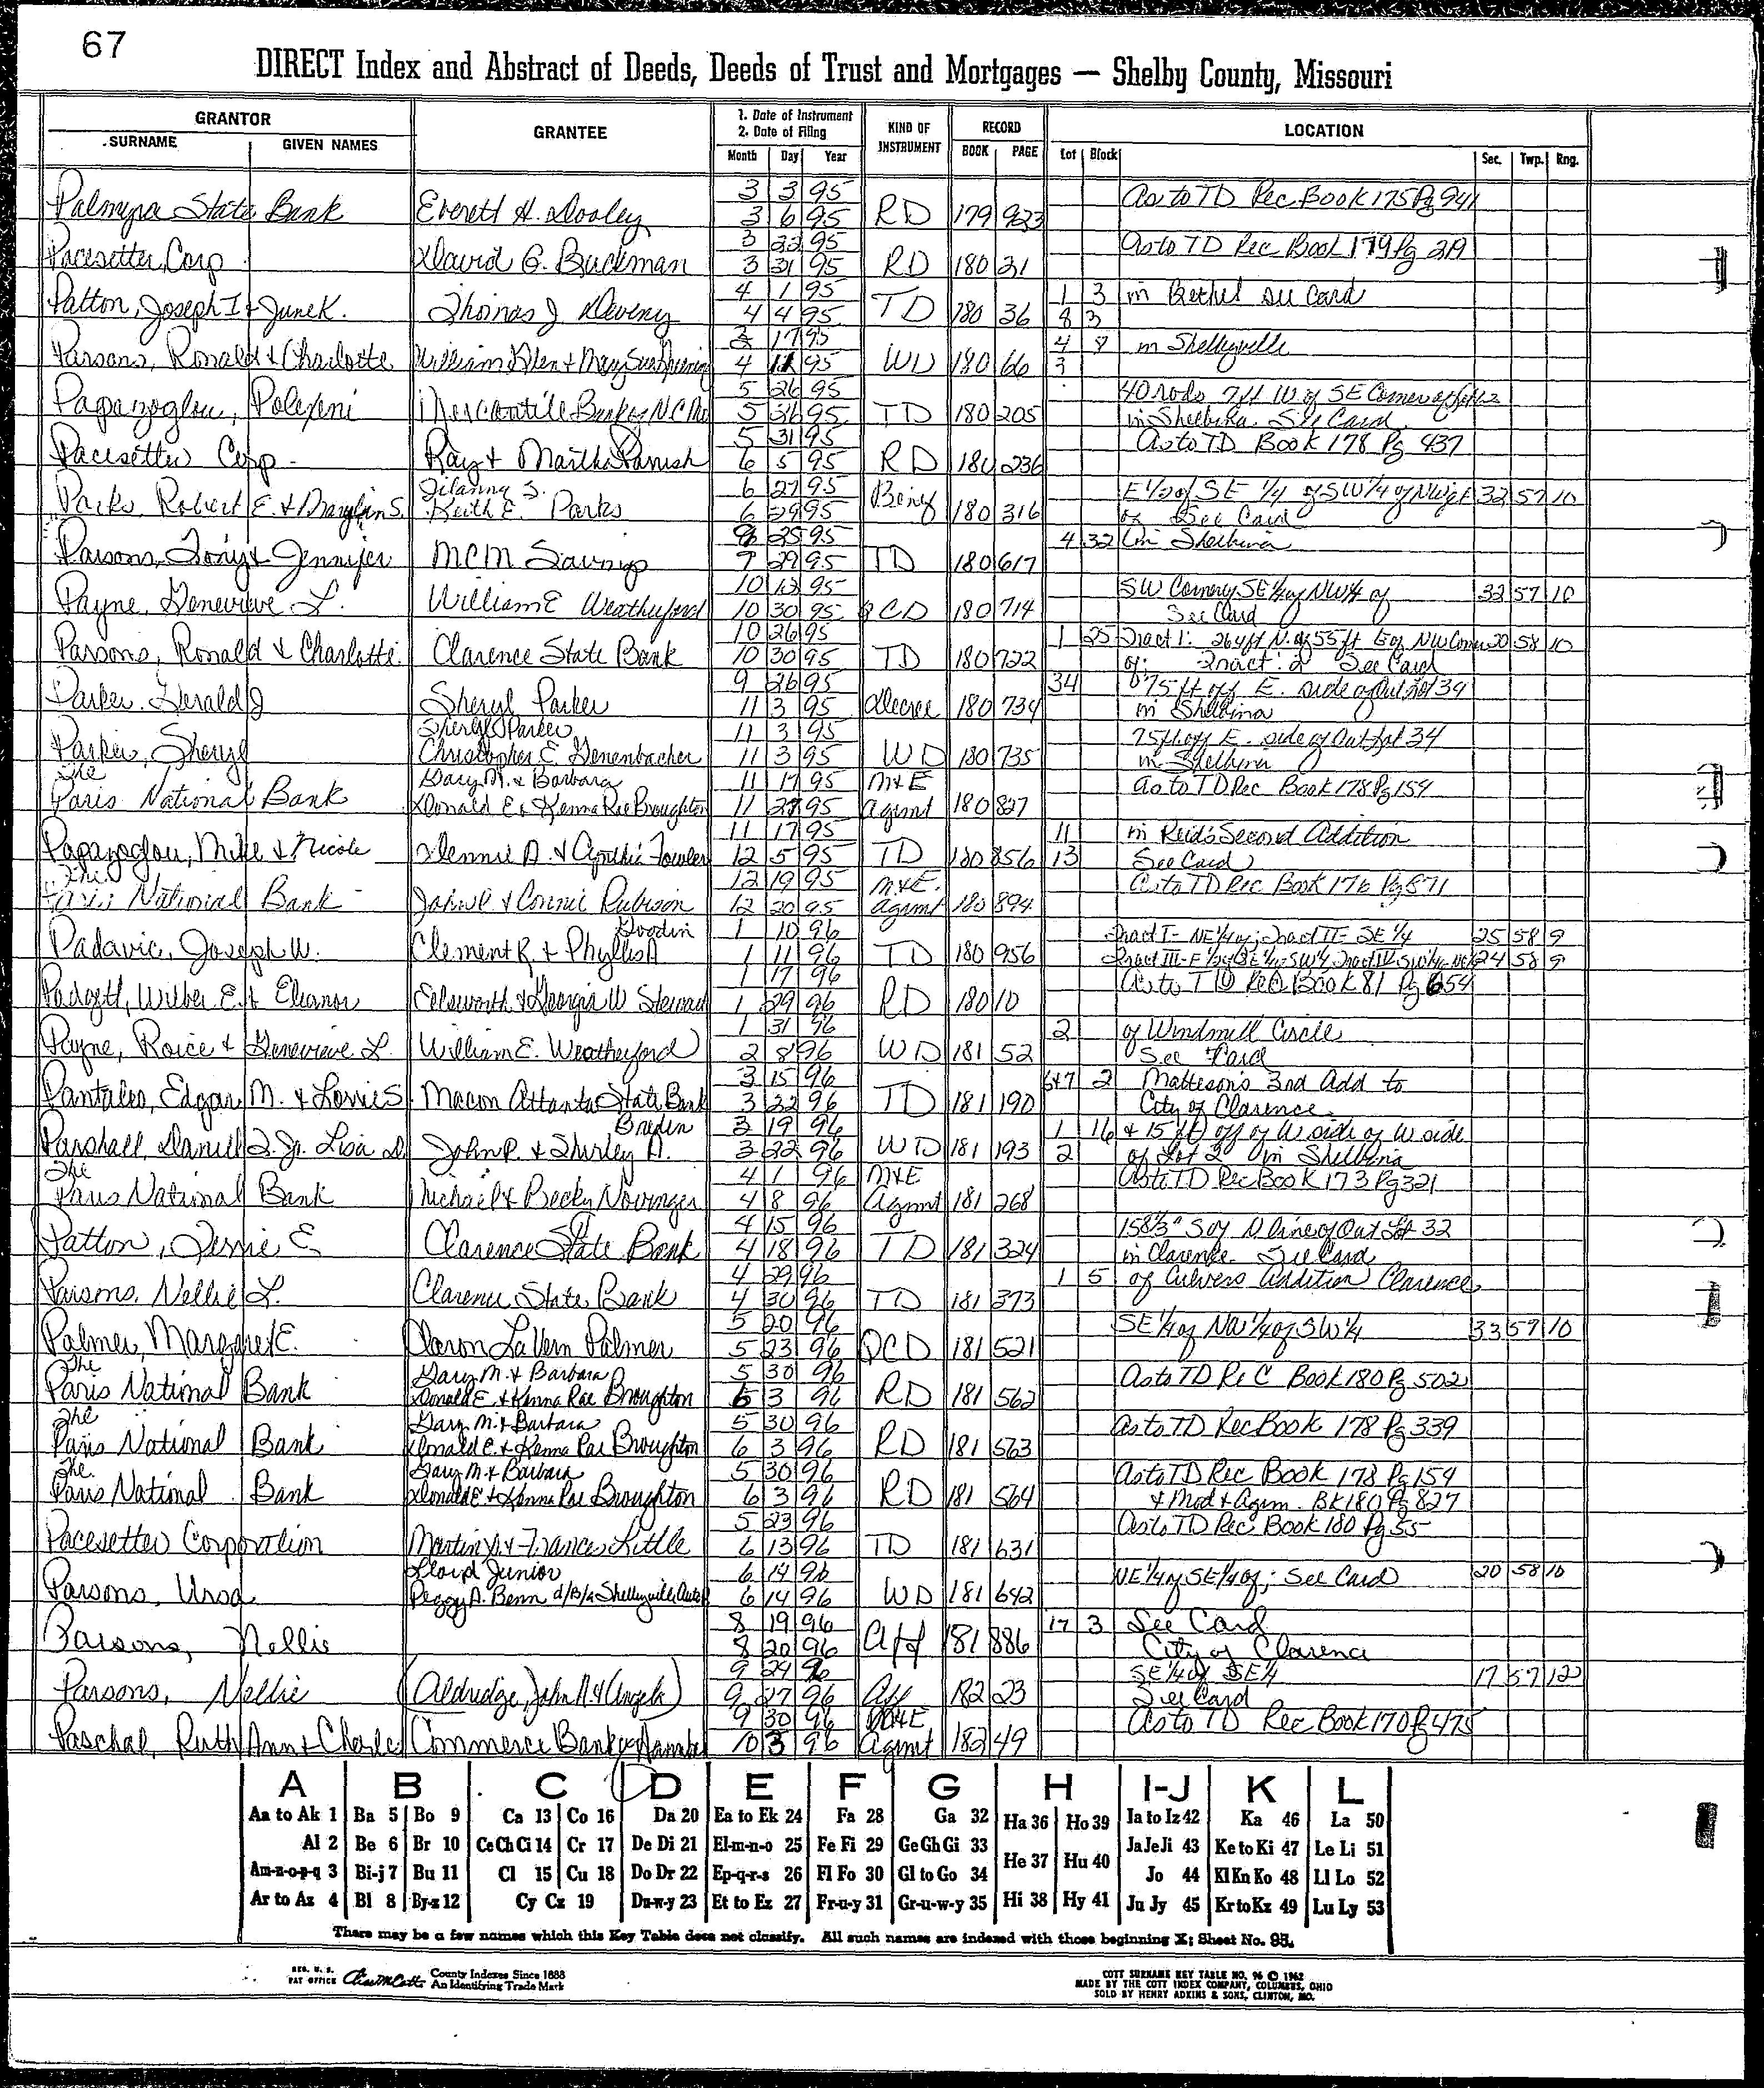 67
DIRECT Index and Abstract of Deeds, Deeds of Trust and Mortgages — Shelby County, Missouri
GRANTOR GRANTEE 1. Date of Instrument 2. Date of Filing KIND OF INSTRUMENT RECORD LOCATION
SURNAME GIVEN NAMES Month Day Year BOOK PAGE Lot Block Sec. Twp. Rng.
3 3 95 As to TD Rec Book 175 Pg 941
Palmyra State Bank Everett H. Dooley 3 6 95 RD 179 923
3 22 95 As to TD Rec Book 179 Pg 219
Pacesetter Corp David G. Buckman 3 31 95 RD 180 31
4 1 95 1 3 in Bethel See Card
Patton, Joseph I & June K. Thomas J Deveny 4 4 95 TD 180 36 8 3
17 95 4 8 in Shelbyville
Parsons, Ronald & Charlotte William Allen & Mary Sue 4 11 95 WD 180 66 3
5 26 95 40 rods 7 ft W of SE Corner of
Papazoglou, Polexeni Mercantile Bank of N C Mo 5 31 95 TD 180 205 in Shelbina. See Card
5 31 95 As to TD Book 178 Pg 437
Pacesetter Corp Ray & Martha Parrish 6 5 95 RD 180 236
Jilanna S. 6 27 95 E 1/2 of SE 1/4 of SW 1/4 of NW 1/4 32 57 10
Parks Robert E. & Marylin S. Keith E. Parks 6 29 95 Benef 180 316 of See Card
25 95 4 32 in Shelbina
Parsons, Tony & Jennifer MCM Savings 9 29 95 TD 180 617
10 13 95 SW Corner of SE 1/4 of NW 1/4 of 32 57 10
Payne, Genevieve L. William E Weatherford 10 30 95 QCD 180 714 See Card
10 26 95 1 25 Tract 1: 264 ft N. of 55 ft E of NW Corner 20 58 10
Parsons, Ronald & Charlotte Clarence State Bank 10 30 95 TD 180 722 of; Tract: 2 See Card
9 26 95 34 75 ft off E. side of Out Lot 34
Parker, Gerald J Sheryl Parker 11 3 95 Decree 180 734 in Shelbina
Sheryl Parker 11 3 95 75 ft off E. side of Out Lot 34
Parker, Sheryl Christopher E. Genenbacher 11 3 95 WD 180 735 in Shelbina
The Gary M. & Barbara 11 17 95 M&E As to TD Rec Book 178 Pg 154
Paris National Bank Donald E & Kenna Rae Broughton 11 27 95 Agmt 180 827
11 17 95 11 in Reid's Second Addition
Papazoglou, Mike & Nicole Dennie A. & Cynthia Fowler 12 5 95 TD 180 856 13 See Card
The 12 19 95 M&E As to TD Rec Book 176 Pg 871
Paris National Bank John C & Connie Rubison 12 20 95 Agmt 180 894
Goodin 1 10 96 Tract I - NE 1/4 of; Tract II - SE 1/4 25 58 9
Padavic, Joseph W. Clement R. & Phyllis A 1 11 96 TD 180 956 24 58 9
1 17 96 As to TD Rec Book 81 Pg 654
Padgett, Wilber E & Eleanor Ellsworth & Georgia W Steward 1 29 96 RD 180 10
1 31 96 2 of Windmill Circle
Payne, Roice & Genevieve L. William E. Weatherford 2 8 96 WD 181 52 See Card
3 15 96 6&7 2 Matteson's 2nd Add to
Pantaleo, Edgar M. & Lorrie S Macon Atlanta State Bank 3 22 96 TD 181 190 City of Clarence
Breden 3 19 96 1 16 & 15 ft off of W side of W side
Parshall, Daniel Jr. Lisa D John P. & Shirley A. 3 22 96 WD 181 193 2 of Lot 2 in Shelbina
The 4 1 96 M&E As to TD Rec Book 173 Pg 321
Paris National Bank Michael & Becky Novinger 4 8 96 Agmt 181 268
4 15 96 158 1/3" S of N line of Out Lot 32
Patton, Jessie E Clarence State Bank 4 18 96 TD 181 324 in Clarence See Card
4 29 96 1 5 of Culvers Addition Clarence
Parsons, Nellie L. Clarence State Bank 4 30 96 TD 181 373
5 20 96 SE 1/4 of NW 1/4 of SW 1/4 33 57 10
Palmer, Margaret E. Aaron LaVern Palmer 5 23 96 QCD 181 521
The Gary M. & Barbara 5 30 96 As to TD Rec Book 180 Pg 502
Paris National Bank Donald E. & Kenna Rae Broughton 6 3 96 RD 181 562
The Gary M & Barbara 5 30 96 As to TD Rec Book 178 Pg 339
Paris National Bank Donald E. & Kenna Rae Broughton 6 3 96 RD 181 563
The Gary M & Barbara 5 30 96 As to TD Rec Book 178 Pg 154
Paris National Bank Donald E & Kenna Rae Broughton 6 3 96 RD 181 564 & Mod & Agrm. BK 180 Pg 827
5 23 96 As to TD Rec Book 180 Pg 55
Pacesetter Corporation Martin & Frances Little 6 13 96 TD 181 631
Lloyd Junior 6 14 96 NE 1/4 of SE 1/4 of; See Card 20 58 10
Parsons, Ursa Peggy A. Benn d/b/a Shelbyville Auto 6 14 96 WD 181 642
8 19 96 17 3 See Card
Parsons, Nellie 8 20 96 Aff 181 886 City of Clarence
9 24 96 SE 1/4 of SE 1/4 17 57 12
Parsons, Nellie (Aldridge, John R. & Angela) 9 27 96 Aff 182 23 See Card
9 30 96 M&E As to TD Rec Book 170 Pg 475
Paschal, Ruth Ann & Charle Commerce Bank of 10 3 96 Agmt 182 49
A B C D E F G H I-J K L
Aa to Ak 1 Ba 5 Bo 9 Ca 13 Co 16 Da 20 Ea to Ek 24 Fa 28 Ga 32 Ha 36 Ho 39 Ia to Iz 42 Ka 46 La 50
Al 2 Be 6 Br 10 Ce Ch Ci 14 Cr 17 De Di 21 El-m-n-o 25 Fe Fi 29 Ge Gh Gi 33 He 37 Hu 40 Ja Je Ji 43 Ke to Ki 47 Le Li 51
Am-n-o-p-q 3 Bi-j 7 Bu 11 Cl 15 Cu 18 Do Dr 22 Ep-q-r-s 26 Fl Fo 30 Gl to Go 34 Jo 44 Kl Kn Ko 48 Ll Lo 52
Ar to Az 4 Bl 8 By-z 12 Cy Cz 19 Du-w-y 23 Et to Ez 27 Fr-u-y 31 Gr-u-w-y 35 Hi 38 Hy 41 Ju Jy 45 Kr to Kz 49 Lu Ly 53
There may be a few names which this Key Table does not classify. All such names are indexed with those beginning X; Sheet No. 95.
REG. U. S. PAT OFFICE County Indexes Since 1888 An Identifying Trade Mark
COTT SURNAME KEY TABLE NO. 96 © 1962
MADE BY THE COTT INDEX COMPANY, COLUMBUS, OHIO
SOLD BY HENRY ADKINS & SONS, CLINTON, MO.